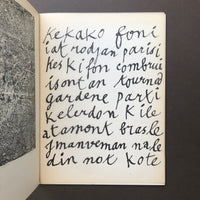 kekako foni
iat rodjan parisi
kes ki fon combrui
isont an tournad
gardene parti
kelerdon kile
atamont brasle
jmanveman nale
din not kote